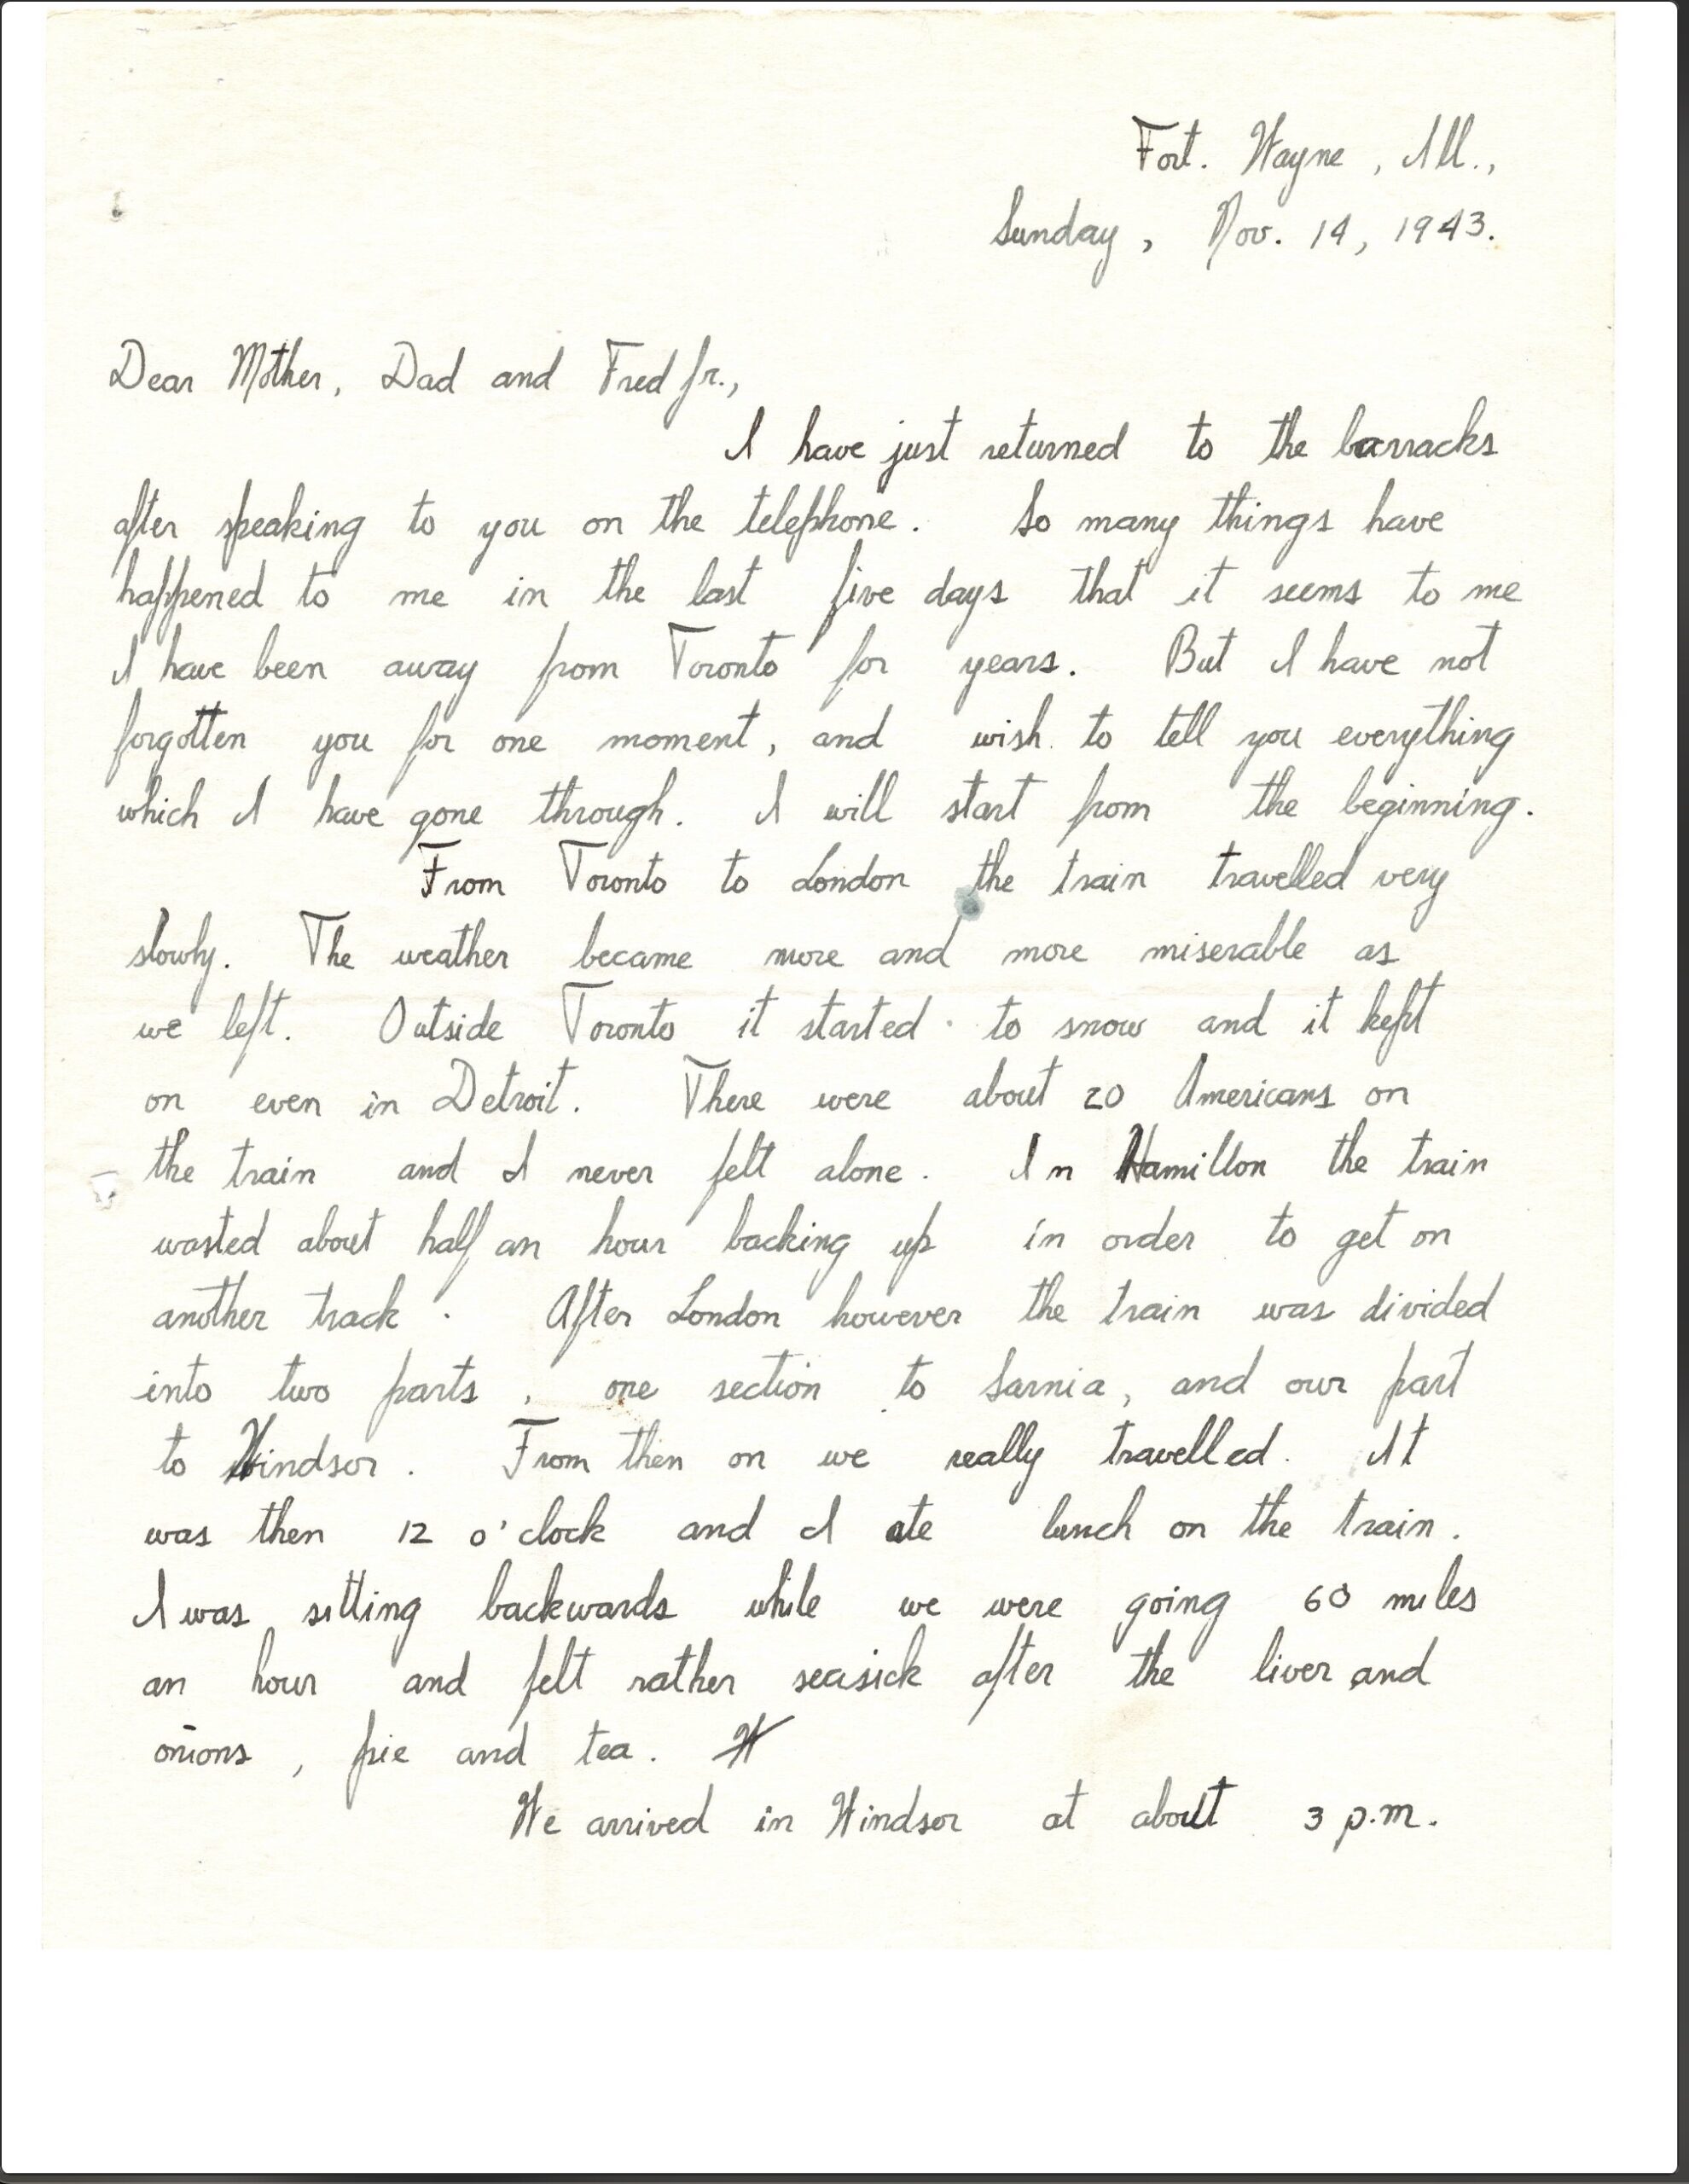 Fort. Wayne, Ill.,
Sunday, Nov. 14, 1943.
Dear Mother, Dad and Fred Jr.,
I have just returned to the barracks
after speaking to you on the telephone. So many things have
happened to me in the last five days that it seems to me
I have been away from Toronto for years. But I have not
forgotten you for one moment, and wish to tell you everything
which I have gone through. I will start from the beginning.
From Toronto to London the train travelled very
slowly. The weather became more and more miserable as
we left. Outside Toronto it started to snow and it kept
on even in Detroit. There were about 20 Americans on
the train and I never felt alone. In Hamilton the train
wasted about half an hour backing up in order to get on
another track. After London however the train was divided
into two parts, one section to Sarnia, and our part
to Windsor. From then on we really travelled. It
was then 12 o'clock and I ate lunch on the train.
I was sitting backwards while we were going 60 miles
an hour and felt rather seasick after the liver and
onions, pie and tea.
We arrived in Windsor at about 3 p.m.